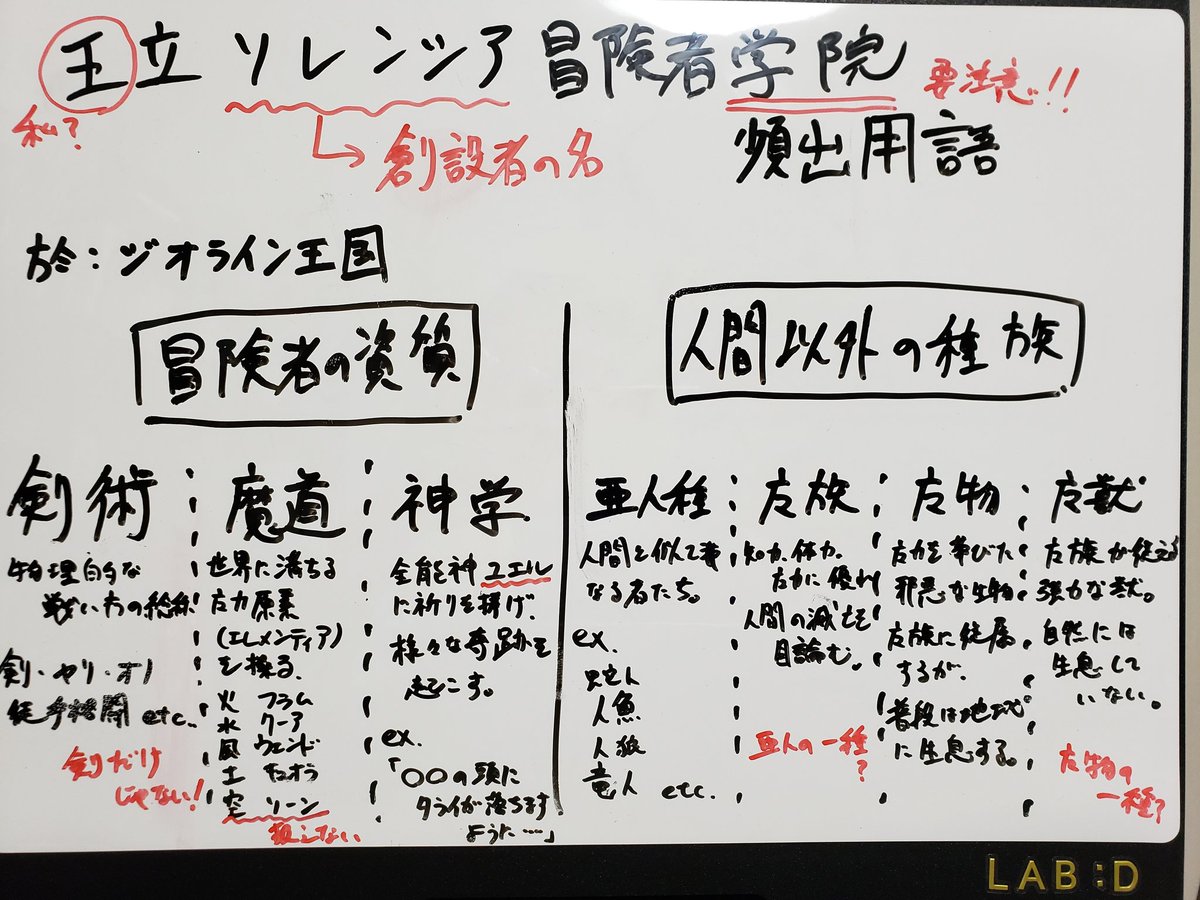 王立 ソレンツア 冒険者学院
私?
要注意!!
創設者の名
頻出用語
於:ジオライン王国
冒険者の資質
剣術
物理的な
戦い方の総称
剣・ヤリ・オノ
徒手格闘 etc.
剣だけ
じゃない!
魔道
世界に満ちる
魔力原素
(エレメンティア)
を操る。
火 フラム
水 クーア
風 ウェンド
土
空 ソーン
扱えない
神学
全能神ユエル
に祈りを捧げ、
様々な奇跡を
起こす。
ex.
「〇〇の頭に
タライが落ちます
ように…」
人間以外の種族
亜人種
人間と似て異
なる者たち。
ex.
蛇人
人魚
人狼
竜人 etc.
魔族
知力、体力、
魔力に優れ
人間の滅亡を
目論む。
亜人の一種
?
魔物
魔力を帯びた
邪悪な生物
魔族に従属
するが、
普段は
に生息する。
魔獣
魔族が従える
強力な獣。
自然には
生息して
いない。
魔物の
一種?
LAB:D